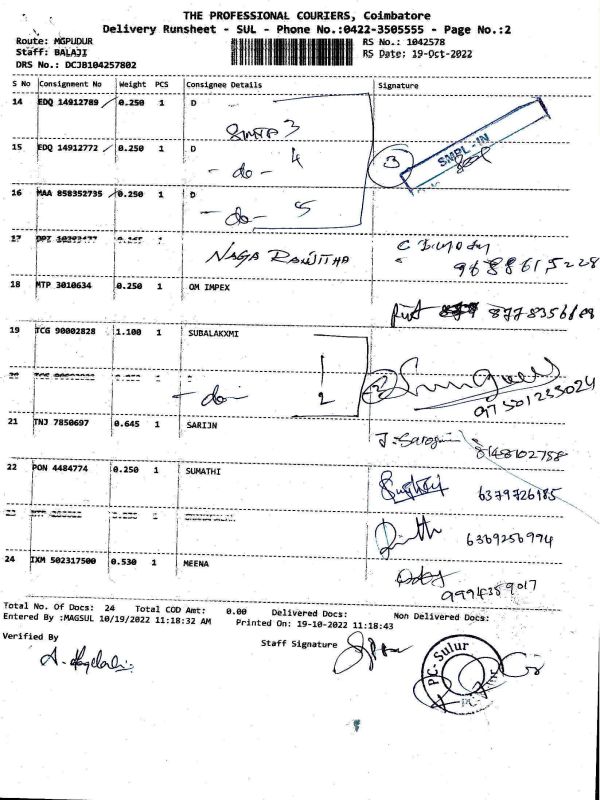 THE PROFESSIONAL COURIERS, Coimbatore
Delivery Runsheet - SUL - Phone No.:0422-3505555 - Page No.:2
Route: MGPUDUR RS No.: 1042578
Staff: BALAJI RS Date: 19-Oct-2022
DRS No.: DCJB104257802
S No Consignment No Weight PCS Consignee Details Signature
14 EDQ 14912789 0.250 1 D
3
15 EDQ 14912772 0.250 1 D
-do- 4
3 SMBL-IN
16 MAA 858352735 0.250 1 D
-do- 5
17
NAGA RANJITHA
9688615228
18 MTP 3010634 0.250 1 OM IMPEX
19 TCG 90002828 1.100 1 SUBALAKXMI
1
-do- 2
97501233024
21 TNJ 7850697 0.645 1 SARIJN
8148102758
22 PON 4484774 0.250 1 SUMATHI
6379726985
23
6369256974
24 IXM 502317500 0.530 1 MEENA
9994389017
Total No. Of Docs: 24 Total COD Amt: 0.00 Delivered Docs: Non Delivered Docs:
Entered By :MAGSUL 10/19/2022 11:18:32 AM Printed On: 19-10-2022 11:18:43
Verified By Staff Signature
PC-Sulur